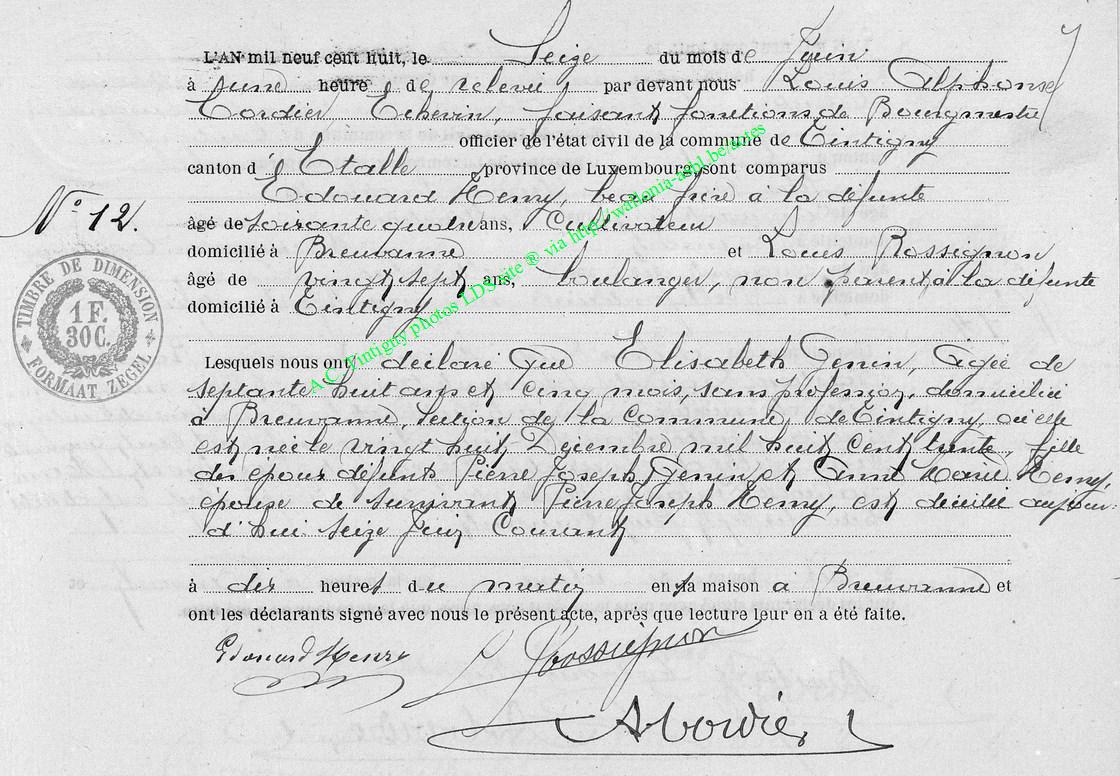 L'AN mil neuf cent huit, le Seize du mois de Juin
à une heure de relevée par devant nous Louis Alphonse
Cordier Echevin, faisant fonctions de Bourgmestre
officier de l'état civil de la commune de Tintigny
canton d'Etalle province de Luxembourg, sont comparus
Edouard Henry, beau frère à la défunte
âgé de soixante quatre ans, Cultivateur
N° 12.
domicilié à Breuvanne et Louis Rossignon
âgé de vingt sept ans, boulanger, non parent à la défunte
domicilié à Tintigny
TIMBRE DE DIMENSION
1 F.
30 C.
FORMAAT ZEGEL
Lesquels nous ont déclaré que Elisabeth Genin, âgée de
septante huit ans et cinq mois, sans profession, domiciliée
à Breuvanne, section de la commune de Tintigny, où elle
est née le vingt huit Décembre mil huit cent trente, fille
des époux défunts Pierre Joseph Genin et Anne Marie Henry,
épouse de survivant Pierre Joseph Henry, est décédée aujour-
d'hui seize Juin Courant
à dix heures du matin en sa maison à Breuvanne et
ont les déclarants signé avec nous le présent acte, après que lecture leur en a été faite.
Edouard Henry
L Rossignon
A Cordier
A.C. Tintigny photos LDS site ® via http://wallonia-asbl.be/actes